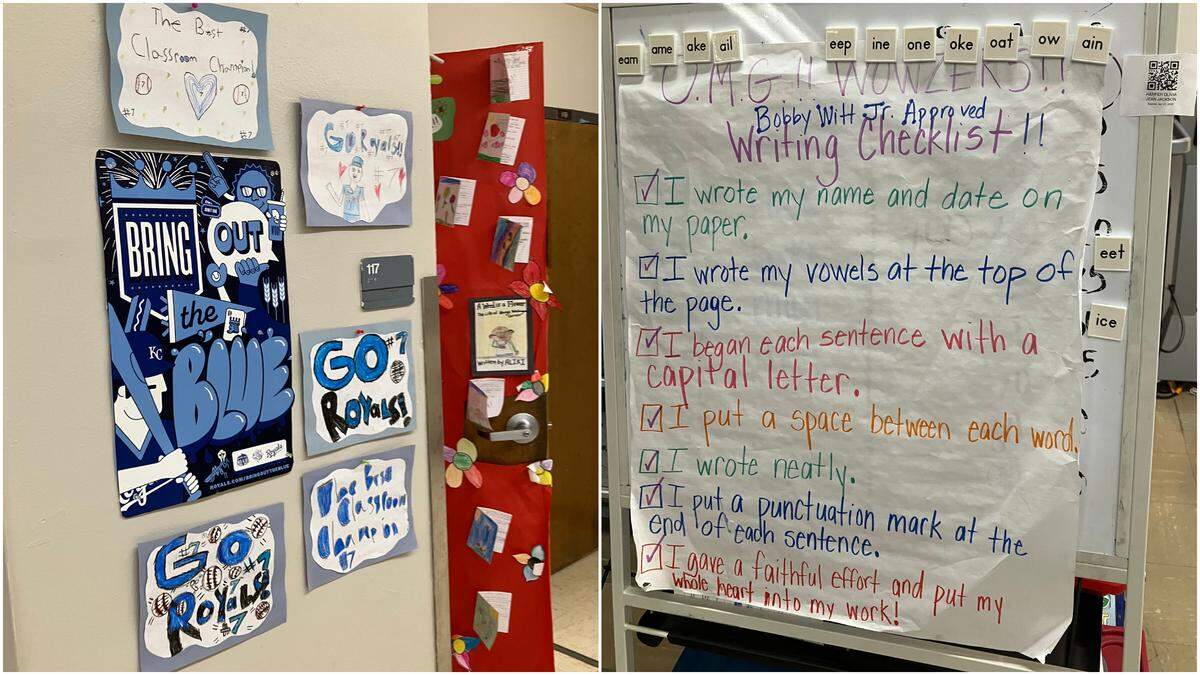 The Best
Classroom
Champion!
#7
#7
#7
BRING
OUT
the
BLUE
KC
ROYALS.COM/BRINGOUTTHEBLUE
Go Royals!!
#7
117
GO #7
ROYALS!
The Best
Classroom
Champion
#7
GO
#7
#7
ROYALS!
7
A Weed is a Flower
written by ALIKI
eam
ame
ake
ail
eep
ine
one
oke
oat
ow
ain
O.M.G!! WOWZERS!!
Bobby Witt Jr. Approved
Writing Checklist!!
I wrote my name and date on
my paper.
I wrote my vowels at the top of
the page.
I began each sentence with a
capital letter.
I put a space between each word.
I wrote neatly.
I put a punctuation mark at the
end of each sentence.
I gave a faithful effort and put my
whole heart into my work!
eet
ice
HARPER OLIVIA
JEAN JACKSON